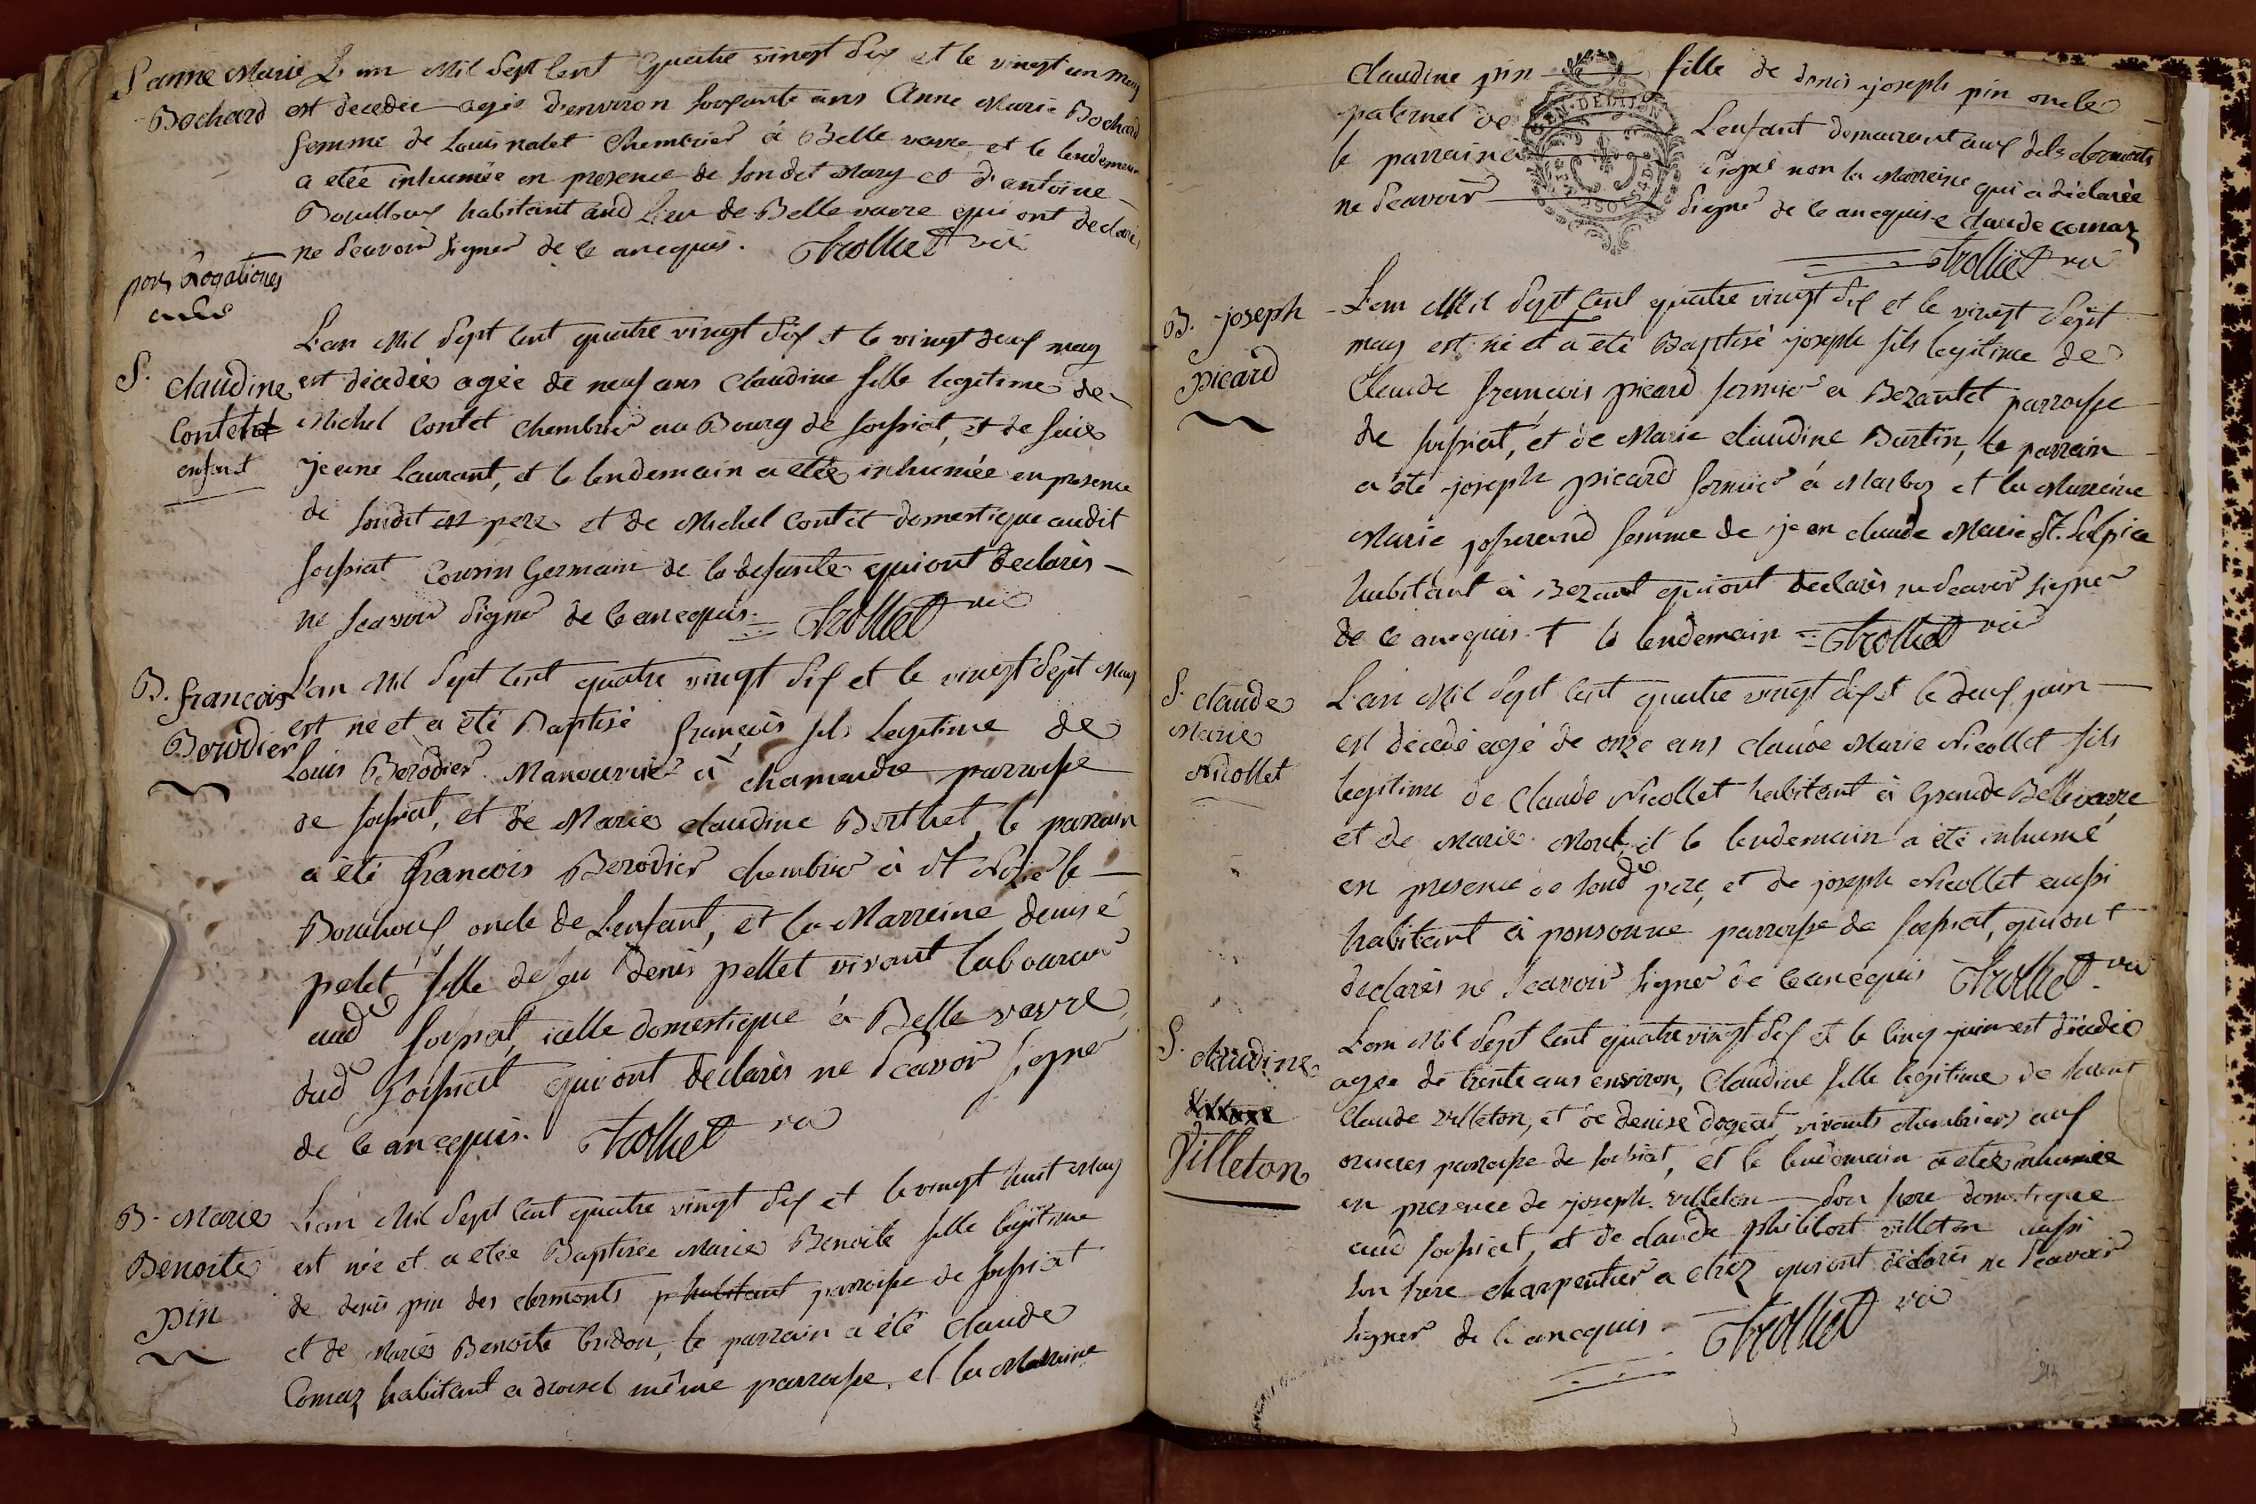 S. anne Marie
Bochard
L'an Mil Sept Cent Quatre vingt dix et le vingt un may
est decedée agée d'environ soixante ans Anne Marie Bochard
femme de Louis nalet Chambrier à Belle vavre, et le lendemain
a etée inhumée en presence de son dit Mary et d'antoine
Bouilloux habitant aud Lieu de Belle vavre qui ont declarés
ne sçavoir signer de ce anequis. Trolliet vic
post Rogationes
S. claudine
Contet
enfant
L'an Mil Sept Cent quatre vingt dix et le vingt deux may
est décedée agée de neuf ans Claudine fille legitime de
Michel Contet Chambrier au Bourg de forsiat, et de
jeane Laurant, et le lendemain a etée inhumée en presence
de sondit pere et de Michel Contet domestique audit
forsiat Cousin Germain de la defunte qui ont declarés
ne sçavoir signer de ce anequis. Trolliet vic
B. françois
Berodier
L'an Mil Sept Cent quatre vingt dix et le vingt Sept May
est né et a été Baptisé françois fils Legitime de
Louis Berodier Manouvrier à chamandre parroisse
de forsiat, et de Marie claudine Berthet, le parrain
a été françois Berodier chambrier à St Nizier le
Bouchoux oncle de L'enfant, et la Marreine denise
pelet fille de feu Denis pellet vivant laboureur
aud forsiat, icelle domestique à Belle vavre
dud forsiat qui ont declarés ne Sçavoir signer
de ce anequis. Trolliet vic
B. Marie
Benoite
pin
L'an Mil Sept Cent quatre vingt dix et le vingt huit May
est née et a etée Baptisée Marie Benoite fille legitime
de denis pin des clermonts habitant parroisse de forsiat
et de Marie Benoite bridon, le parrain a été Claude
Comaz habitant a droisel même parroisse, et la Marreine
claudine pin fille de denis joseph pin oncle
paternel de L'enfant demeurant aux dits clermonts
le parraine signé non la Marreine qui a déclarée
ne Sçavoir signer de ce anequise claude comaz
Trolliet vic
B. joseph
picard
L'an Mil Sept Cent quatre vingt dix et le vingt Sept
may est né et a été Baptisé joseph fils legitime de
Claude françois picard fermier a Bezantet parroisse
de forsiat, et de Marie claudine Burtin, le parrain
a été joseph picard fermier à Marboz et la Marreine
Marie josserand femme de jean claude Marie St. Sulpice
habitant à Bezant qui ont declarés ne sçavoir signer
de ce anequis. † le lendemain Trolliet vic
S. claude
Marie
Nicollet
L'an Mil Sept Cent quatre vingt dix et le deux juin
est décedé agé de onze ans claude Marie Nicollet fils
legitime de Claude Nicollet habitant à Grande Bellevavre
et de Marie Morel, et le lendemain a été inhumé
en presence de sond pere, et de joseph Nicollet aussi
habitant à ponsonne parroisse de forsiat, qui ont
declarés ne Sçavoir signer de ce anequis Trolliet vic
S. claudine
Villeton
L'an Mil Sept Cent quatre vingt dix et le Cinq juin est décedée
agée de trente ans environ, Claudine fille legitime de
Claude villeton, et de denise dogeat vivants chambriers aux
oruieres parroisse de forsiat, et le lendemain a etée inhumée
en presence de joseph villeton son frere domestique
aud forsiat, et de claude philibert villeton aussi
son frere charpentier a chez qui ont déclarés ne sçavoir
signer de ce anequis. Trolliet vic